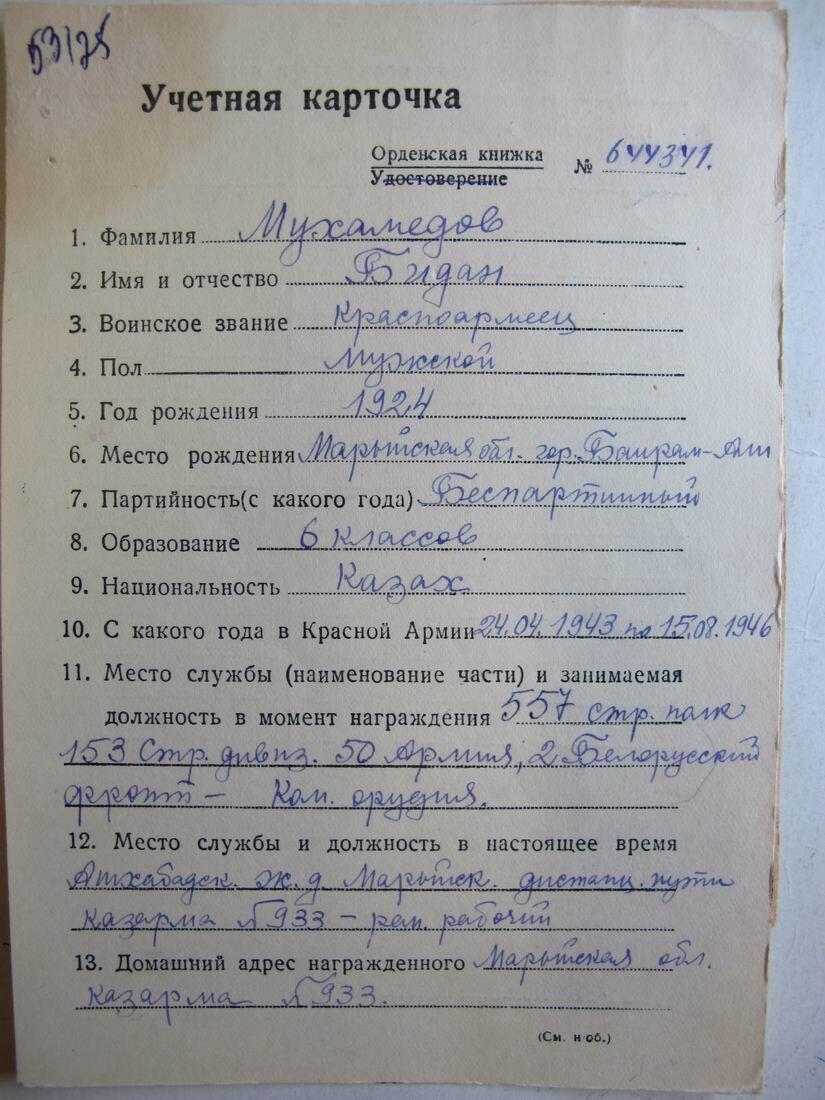 53175
Учетная карточка
Орденская книжка
Удостоверение
№ 644341.
1. Фамилия Мухамедов
2. Имя и отчество Бидан
3. Воинское звание Красноармеец
4. Пол Мужской
5. Год рождения 1924
6. Место рождения Марыйская обл. гор. Баирам-Али
7. Партийность(с какого года) Беспартийный
8. Образование 6 классов
9. Национальность Казах
10. С какого года в Красной Армии 24.04.1943 по 15.08.1946
11. Место службы (наименование части) и занимаемая
должность в момент награждения 557 стр. полк
153 Стр. дивиз. 50 Армия, 2 Белорусский
фронт – Ком. орудия.
12. Место службы и должность в настоящее время
Ашхабадск. ж. д Марыйск. дистанц. пути
казарма № 933 – рем. рабочий
13. Домашний адрес награжденного Марыйская обл.
казарма № 933.
(См. н об.)